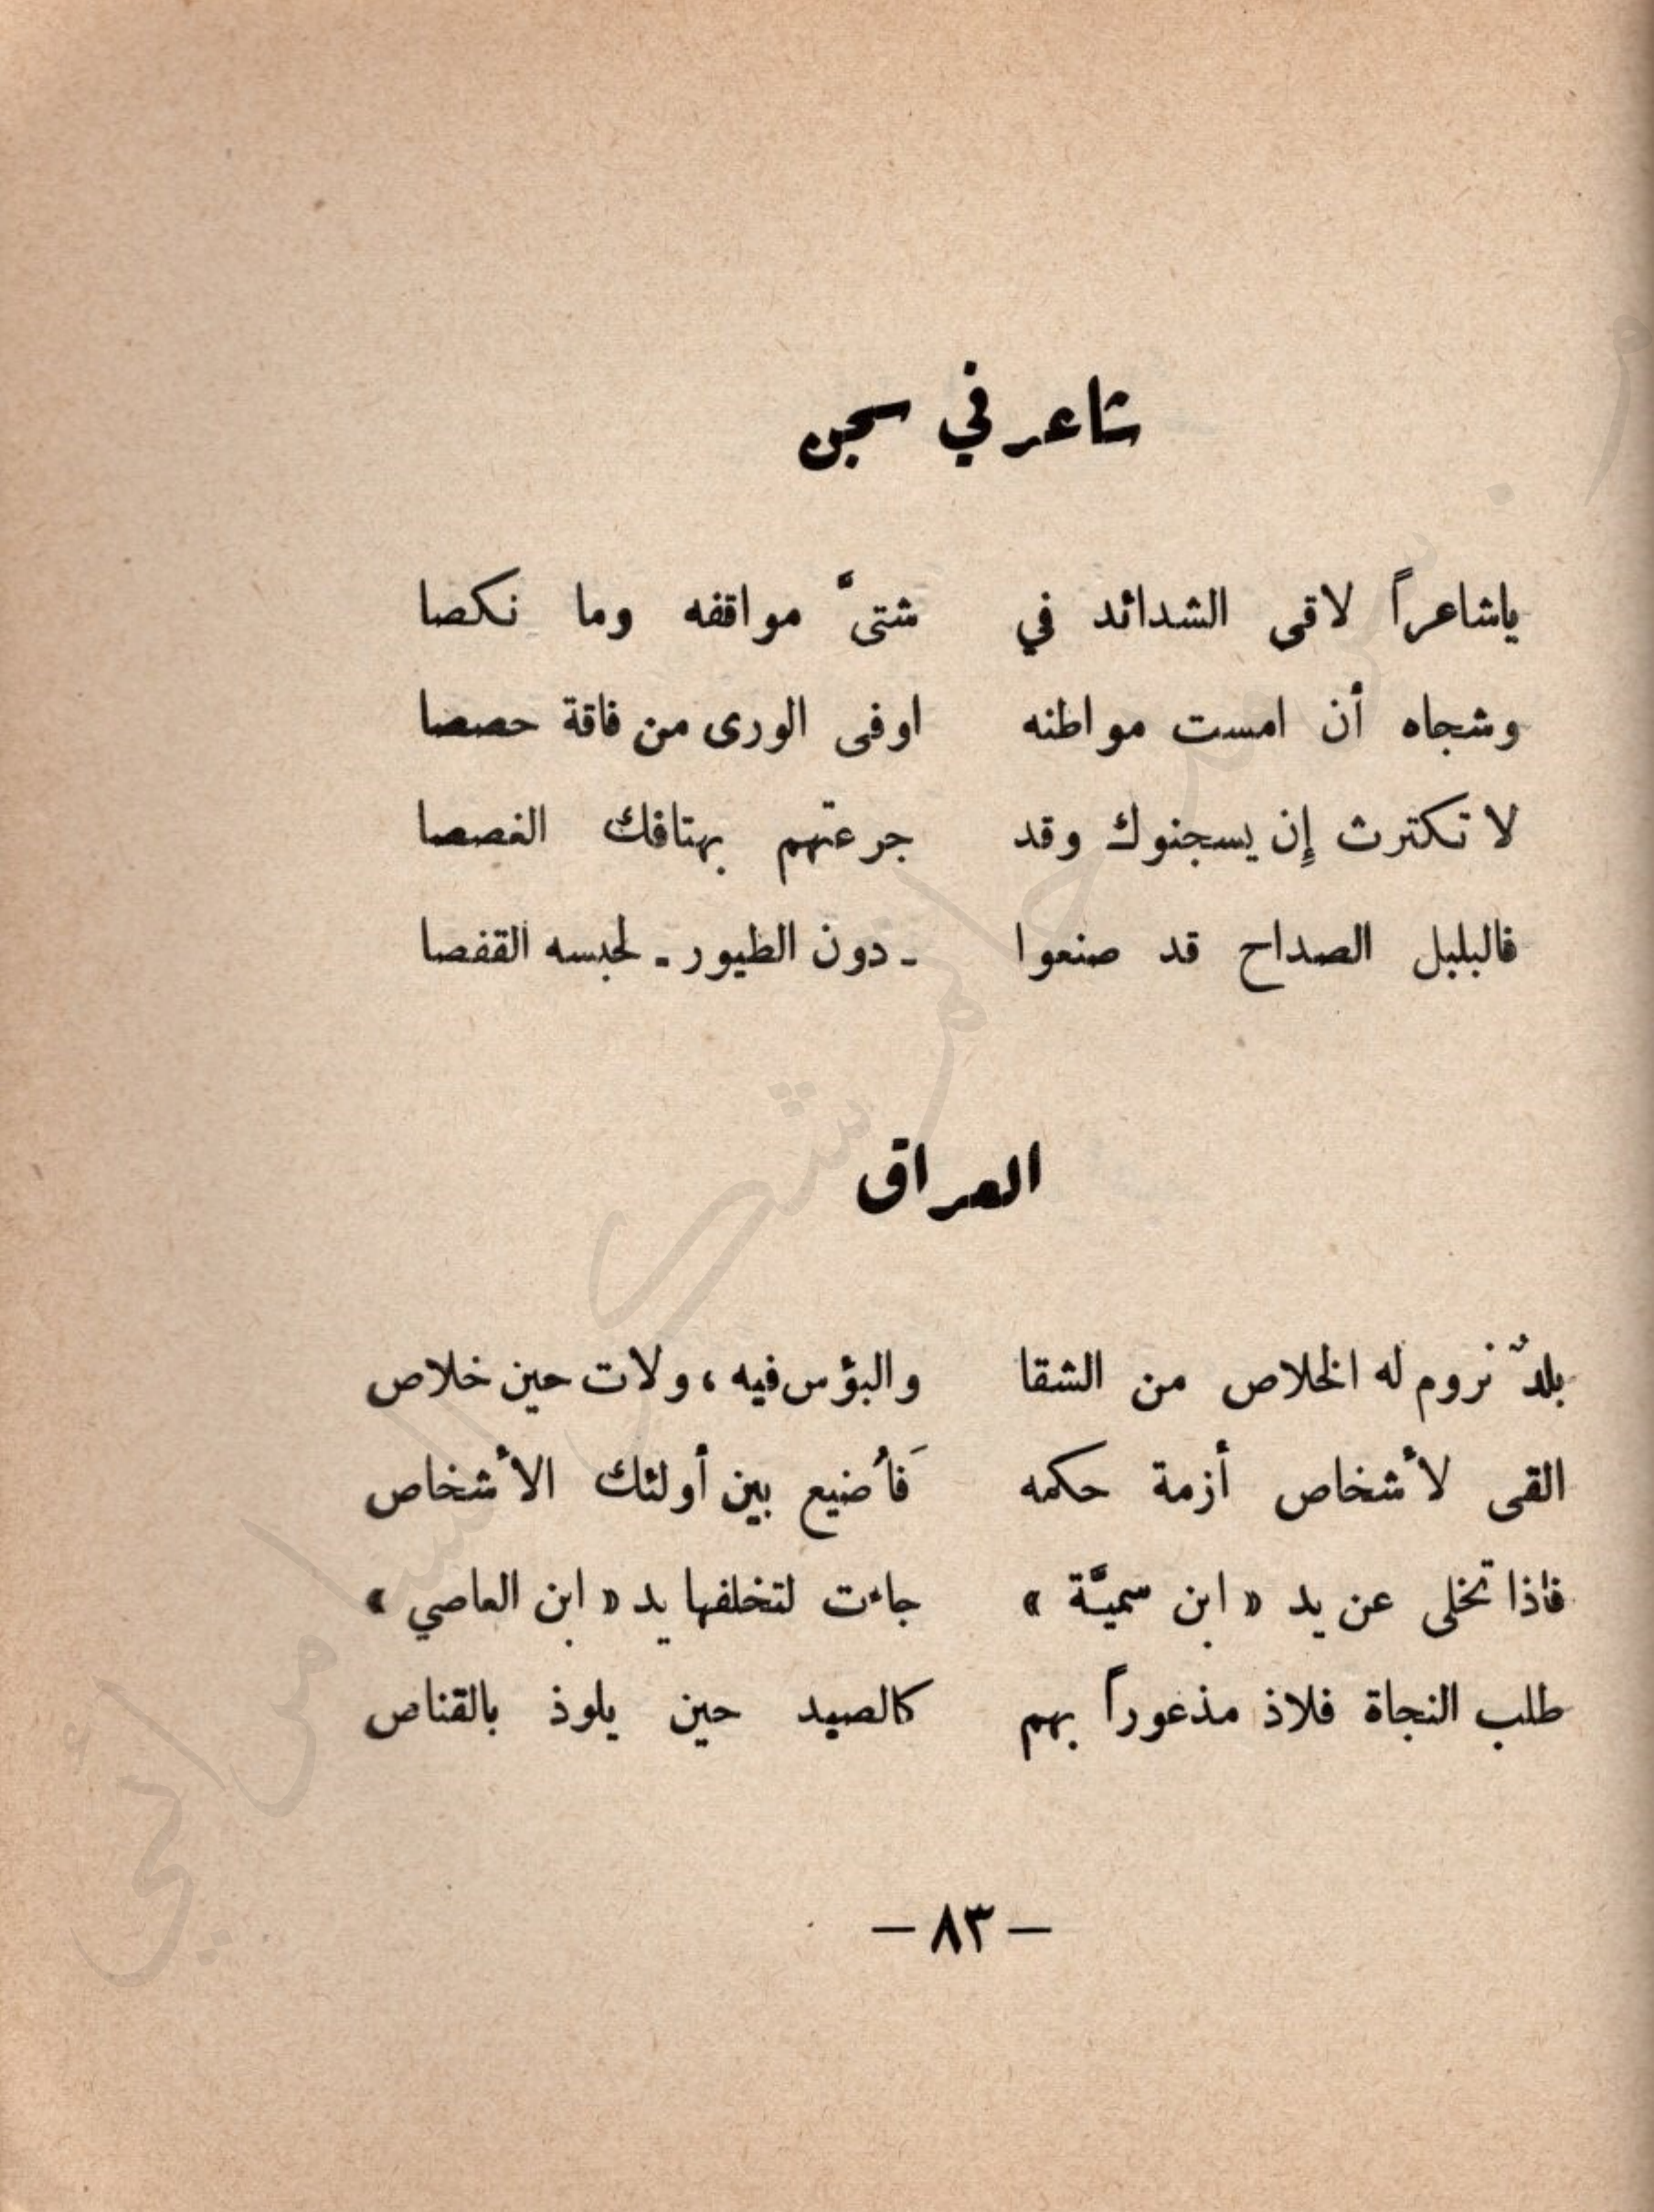 شاعر في سجن
ياشاعراً لاقى الشدائد في شتىَّ مواقفه وما نكصا
وشجاه أن امست مواطنه اوفى الورى من فاقة حصصا
لا تكترث إن يسجنوك وقد جرعتهم بهتافك الغصصا
فالبلبل الصداح قد صنعوا - دون الطيور - لحبسه القفصا
العراق
بلدٌ نروم له الخلاص من الشقا والبؤس فيه ، ولات حين خلاص
القى لأشخاص أزمة حكمه فَأُضيع بين أولئك الأشخاص
فاذا تخلى عن يد « ابن سميَّة » جاءت لتخلفها يد « ابن العاصي »
طلب النجاة فلاذ مذعوراً بهم كالصيد حين يلوذ بالقناص
— ٨٣ —